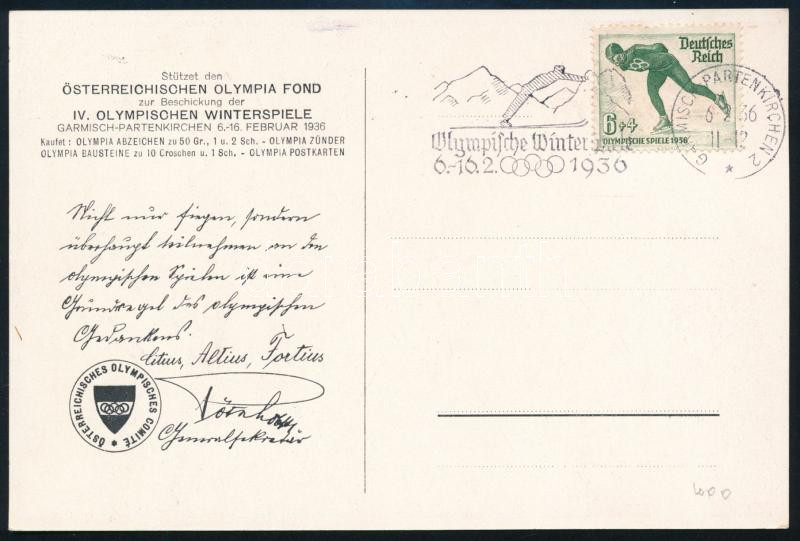 Stützet den
ÖSTERREICHISCHEN OLYMPIA FOND
zur Beschickung der
IV. OLYMPISCHEN WINTERSPIELE
GARMISCH-PARTENKIRCHEN 6.-16. FEBRUAR 1936
Kaufet: OLYMPIA ABZEICHEN zu 50 Gr., 1 u. 2 Sch. - OLYMPIA ZÜNDER
OLYMPIA BAUSTEINE zu 10 Croschen u. 1 Sch. - OLYMPIA POSTKARTEN
Nicht nur siegen, sondern
überhaupt teilnehmen an den
olympischen Spielen ist eine
Grundregel des olympischen
Gedankens.
Citius, Altius, Fortius
Generalsekretär
ÖSTERREICHISCHES OLYMPISCHES COMITÉ
Deutsches
Reich
6+4
OLYMPISCHE SPIELE 1936
Olympische Winter
6.-16.2. 1936
PARTENKIRCHEN 2
6.2.36
400